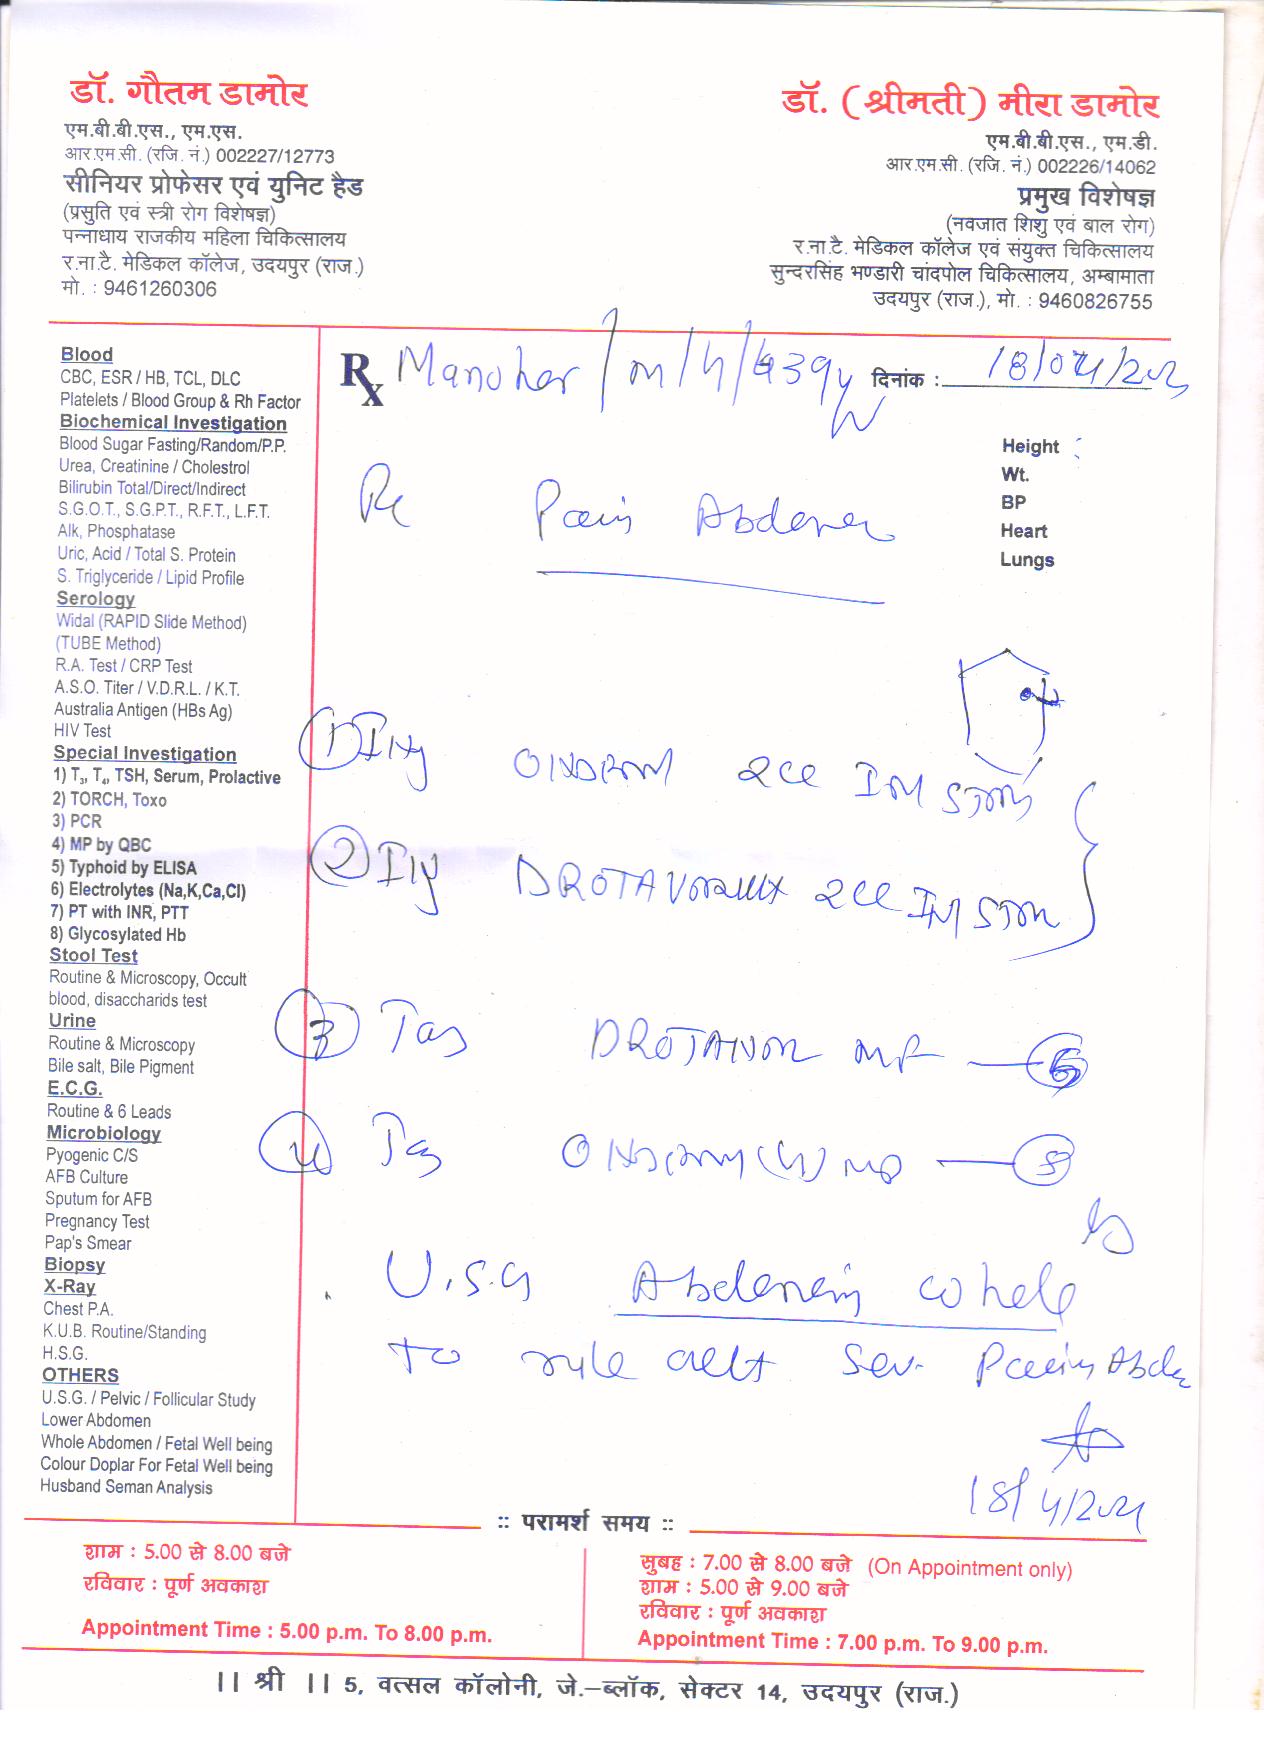 डॉ. गौतम डामोर
एम.बी.बी.एस., एम.एस.
आर.एम.सी. (रजि. नं.) 002227/12773
सीनियर प्रोफेसर एवं युनिट हैड
(प्रसुति एवं स्त्री रोग विशेषज्ञ)
पन्नाधाय राजकीय महिला चिकित्सालय
र.ना.टै. मेडिकल कॉलेज, उदयपुर (राज.)
मो. : 9461260306
डॉ. (श्रीमती) मीरा डामोर
एम.बी.बी.एस., एम.डी.
आर.एम.सी. (रजि. नं.) 002226/14062
प्रमुख विशेषज्ञ
(नवजात शिशु एवं बाल रोग)
र.ना.टै. मेडिकल कॉलेज एवं संयुक्त चिकित्सालय
सुन्दरसिंह भण्डारी चांदपोल चिकित्सालय, अम्बामाता
उदयपुर (राज.), मो. : 9460826755
Blood
CBC, ESR / HB, TCL, DLC
Platelets / Blood Group & Rh Factor
Biochemical Investigation
Blood Sugar Fasting/Random/P.P.
Urea, Creatinine / Cholestrol
Bilirubin Total/Direct/Indirect
S.G.O.T., S.G.P.T., R.F.T., L.F.T.
Alk, Phosphatase
Uric, Acid / Total S. Protein
S. Triglyceride / Lipid Profile
Serology
Widal (RAPID Slide Method)
(TUBE Method)
R.A. Test / CRP Test
A.S.O. Titer / V.D.R.L. / K.T.
Australia Antigen (HBs Ag)
HIV Test
Special Investigation
1) T3, T4, TSH, Serum, Prolactive
2) TORCH, Toxo
3) PCR
4) MP by QBC
5) Typhoid by ELISA
6) Electrolytes (Na,K,Ca,Cl)
7) PT with INR, PTT
8) Glycosylated Hb
Stool Test
Routine & Microscopy, Occult
blood, disaccharids test
Urine
Routine & Microscopy
Bile salt, Bile Pigment
E.C.G.
Routine & 6 Leads
Microbiology
Pyogenic C/S
AFB Culture
Sputum for AFB
Pregnancy Test
Pap's Smear
Biopsy
X-Ray
Chest P.A.
K.U.B. Routine/Standing
H.S.G.
OTHERS
U.S.G. / Pelvic / Follicular Study
Lower Abdomen
Whole Abdomen / Fetal Well being
Colour Doplar For Fetal Well being
Husband Seman Analysis
Rx Manoher / m / H / 39y दिनांक : 18/04/202
Height :
Wt.
BP
Heart
Lungs
Pain Abdomen
1) Inj 2cc IM
2) Inj 2cc IM
3 Tab MF
4 Tab
U.S.G Abdomen whole
to rule out Sev. Pain Abd
18/4/2021
:: परामर्श समय ::
शाम : 5.00 से 8.00 बजे
रविवार : पूर्ण अवकाश
Appointment Time : 5.00 p.m. To 8.00 p.m.
सुबह : 7.00 से 8.00 बजे (On Appointment only)
शाम : 5.00 से 9.00 बजे
रविवार : पूर्ण अवकाश
Appointment Time : 7.00 p.m. To 9.00 p.m.
|| श्री || 5, वत्सल कॉलोनी, जे.–ब्लॉक, सेक्टर 14, उदयपुर (राज.)